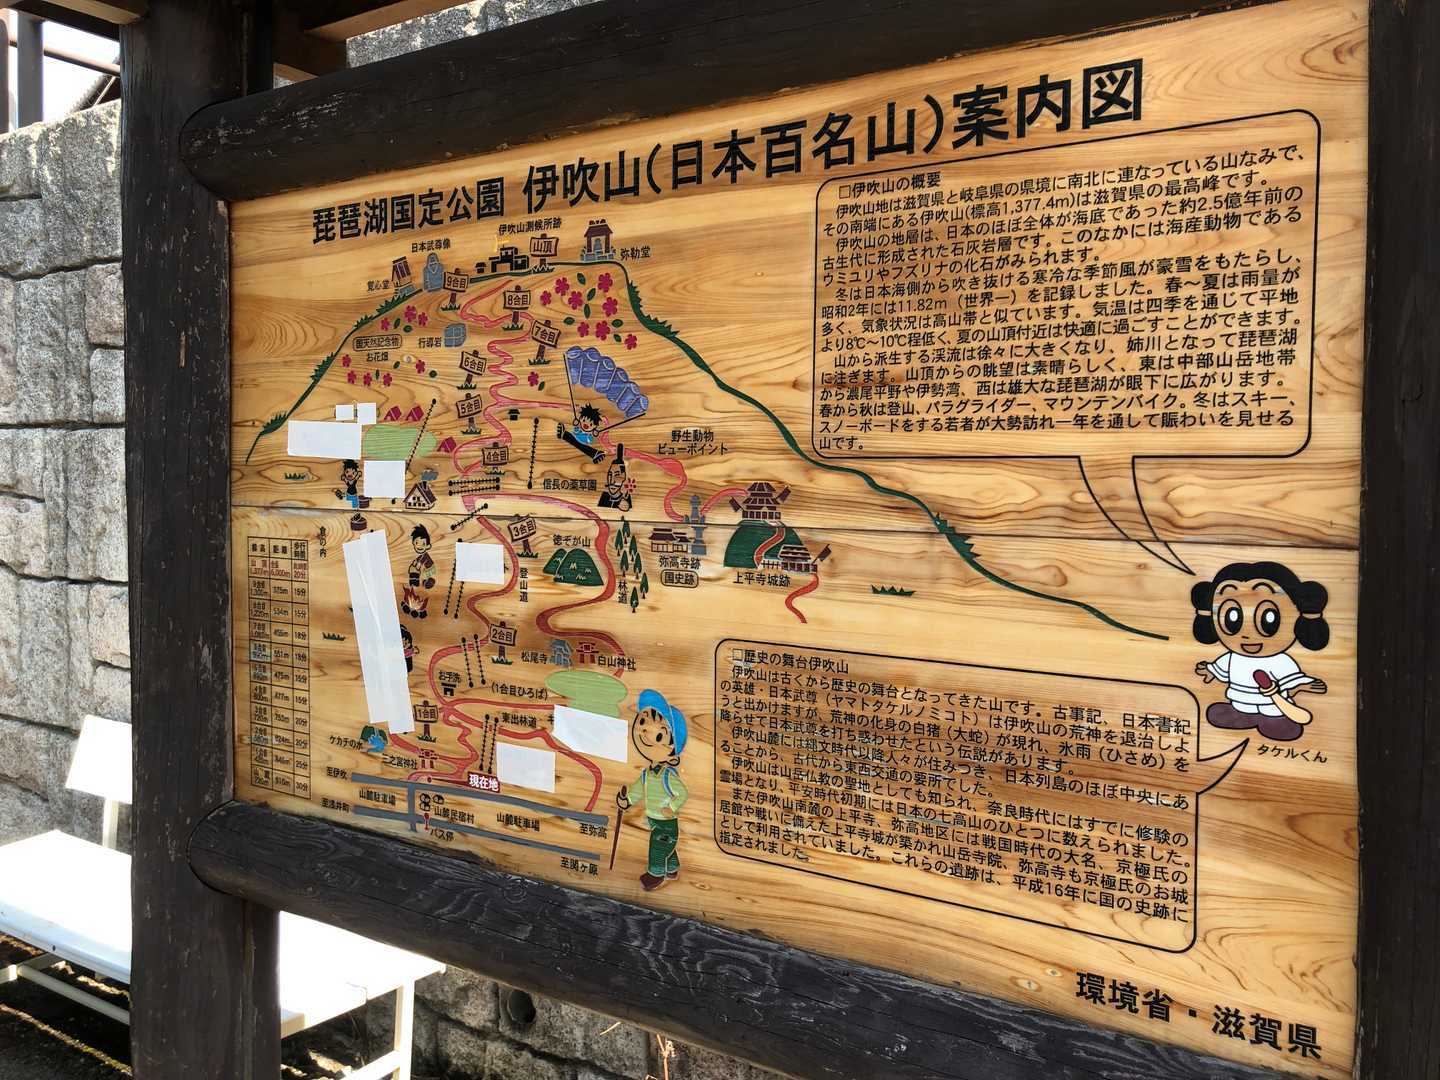 琵琶湖国定公園 伊吹山(日本百名山)案内図
□伊吹山の概要
伊吹山地は滋賀県と岐阜県の県境に南北に連なっている山なみで、
その南端にある伊吹山(標高1,377.4m)は滋賀県の最高峰です。
伊吹山の地層は、日本のほぼ全体が海底であった約2.5億年前の
古生代に形成された石灰岩層です。このなかには海産動物である
ウミユリやフズリナの化石がみられます。
冬は日本海側から吹き抜ける寒冷な季節風が豪雪をもたらし、
昭和2年には11.82m(世界一)を記録しました。春〜夏は雨量が
多く、気象状況は高山帯と似ています。気温は四季を通じて平地
より8℃〜10℃程低く、夏の山頂付近は快適に過ごすことができます。
山から派生する渓流は徐々に大きくなり、姉川となって琵琶湖
に注ぎます。山頂からの眺望は素晴らしく、東は中部山岳地帯
から濃尾平野や伊勢湾、西は雄大な琵琶湖が眼下に広がります。
春から秋は登山、パラグライダー、マウンテンバイク。冬はスキー、
スノーボードをする若者が大勢訪れ一年を通して賑わいを見せる
山です。
伊吹山測候所跡
日本武尊像
山頂
弥勒堂
覚心堂
9合目
8合目
国天然記念物
お花畑
行導岩
7合目
6合目
5合目
野生動物
ビューポイント
4合目
信長の薬草園
3合目
徳ぞが山
登山道
林道
弥高寺跡
国史跡
上平寺城跡
標高 距離 歩行時間
2合目
松尾寺
白山神社
お手洗
(1合目ひろば)
1合目
東出林道
ケカチの水
三之宮神社
現在地
至伊吹
山麓駐車場
山麓民宿村
山麓駐車場
至浅井町
バス停
至弥高
至関ヶ原
タケルくん
□歴史の舞台伊吹山
伊吹山は古くから歴史の舞台となってきた山です。古事記、日本書紀
の英雄・日本武尊(ヤマトタケルノミコト)は伊吹山の荒神を退治しよ
うと出かけますが、荒神の化身の白猪(大蛇)が現れ、氷雨(ひさめ)を
降らせて日本武尊を打ち惑わせたという伝説があります。
伊吹山麓には縄文時代以降人々が住みつき、日本列島のほぼ中央にあ
ることから、古代から東西交通の要所でした。
伊吹山は山岳仏教の聖地としても知られ、奈良時代にはすでに修験の
霊場となり、平安時代初期には日本の七高山のひとつに数えられました。
また伊吹山南麓の上平寺、弥高地区には戦国時代の大名、京極氏の
居館や戦いに備えた上平寺城が築かれ山岳寺院、弥高寺も京極氏のお城
として利用されていました。これらの遺跡は、平成16年に国の史跡に
指定されました。
環境省・滋賀県